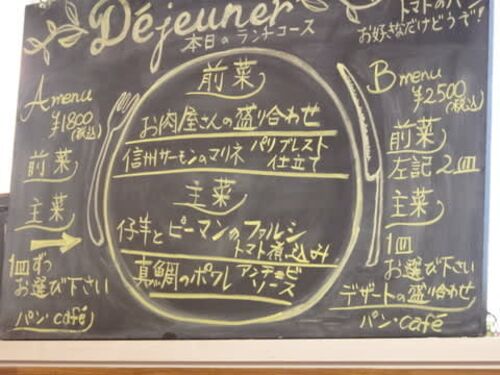 Déjeuner
本日のランチコース
トマトのパ
お好きなだけどうぞ!
A menu
¥1800
(税込)
前菜
主菜
1皿ずつ
お選び下さい
パン・café
前菜
お肉屋さんの盛り合わせ
信州サーモンのマリネ パリブレスト
仕立て
主菜
仔羊とピーマンのファルシ
トマト煮込み
真鯛のポワレ アンチョビ
ソース
B menu
¥2500
(税込)
前菜
左記2皿
主菜
1皿
お選び下さい
デザートの盛り合わせ
パン・café